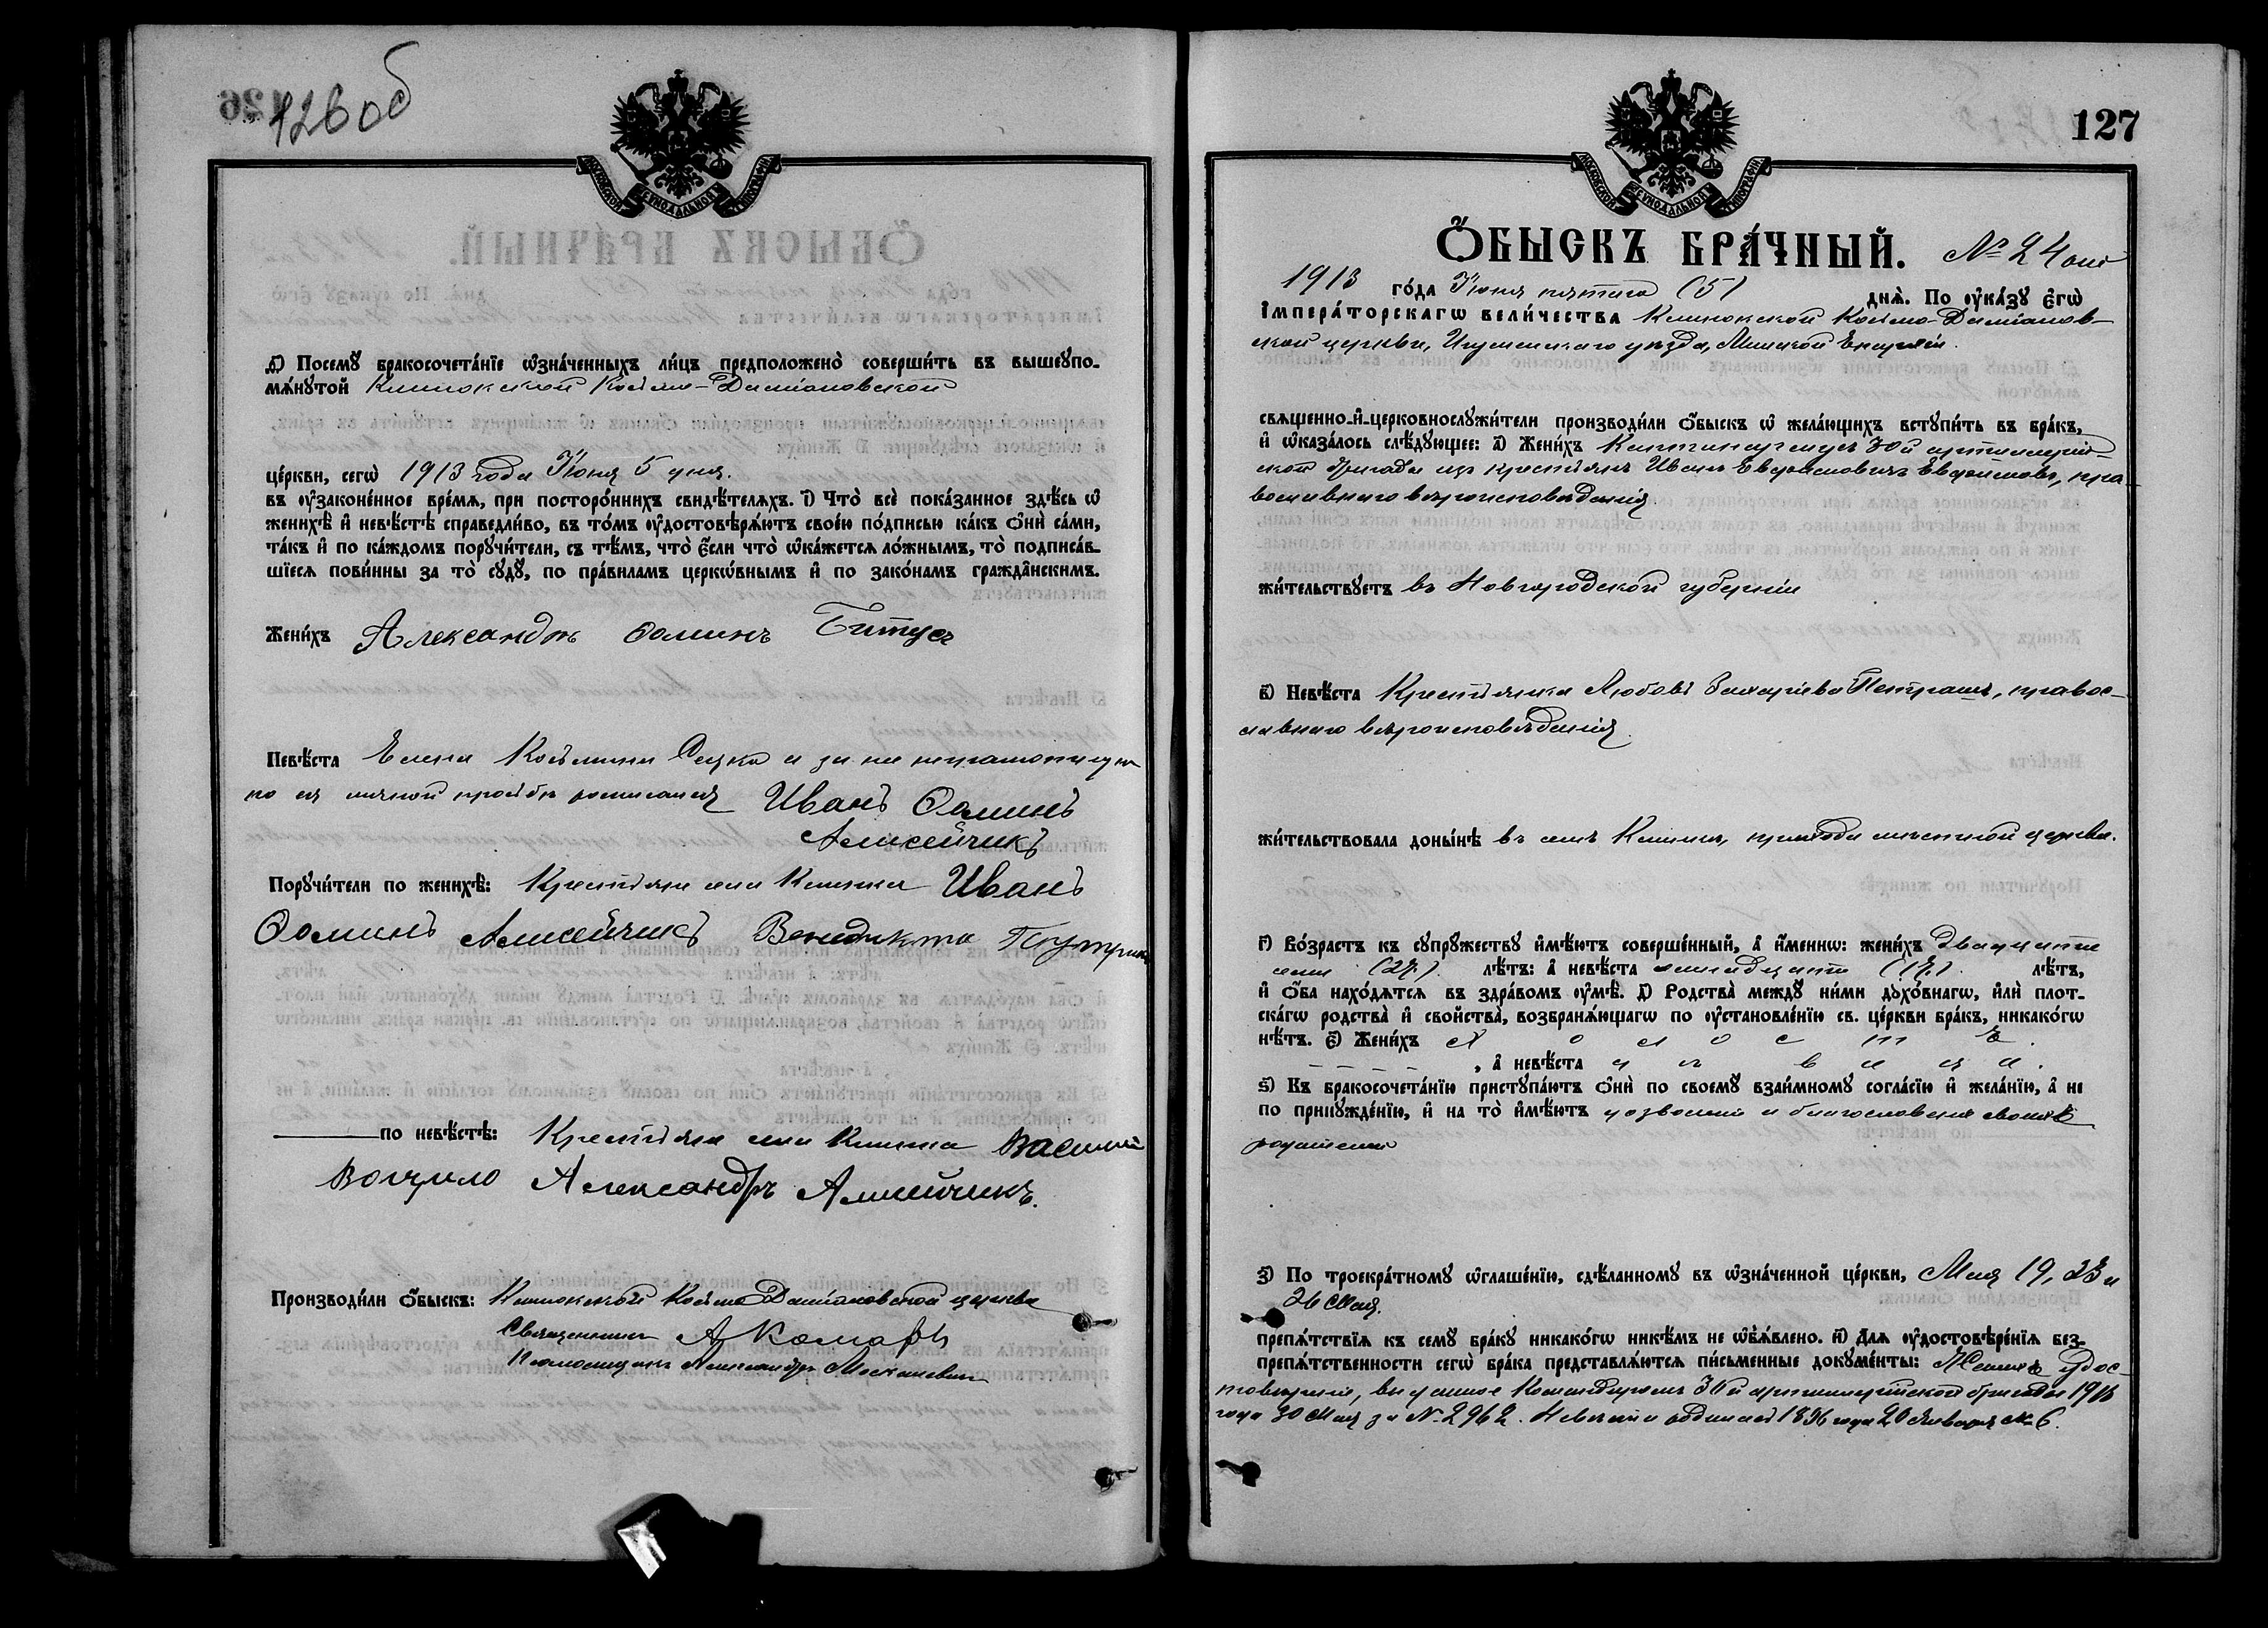 126об
МОСКОВСКОЙ СѴНОДАЛЬНОЙ ТИПОГРАФІИ
д҃) Посемꙋ бракосочета́нїе ѡ҆зна́ченныхъ ли́цъ предположено̀ соверши́ть въ вышеꙋпо-
мѧ́нꙋтой Клинокской Косьмо-Даміановской
це́ркви, сегѡ̀ 1913 года Іюня 5 дня.
въ ѹ҆законе́нное вре́мѧ, при посторо́ннихъ свидѣ́телѧхъ. і҃) Что̀ всѐ пока́занное здѣ́сь ѡ҆
женихѣ̀ и҆ невѣ́стѣ справедли́во, въ то́мъ ѹ҆достовѣрѧ́ютъ свое́ю по́дписью ка́къ ѻ҆нѝ са́ми,
та́къ и҆ по ка́ждомъ порꙋчи́тели, съ тѣ́мъ, что̀ є҆́сли что̀ ѡ҆ка́жетсѧ ло́жнымъ, то̀ подписа́в-
шїесѧ пови́нны за то̀ сꙋдꙋ̀, по пра́виламъ церкѡ́внымъ и҆ по зако́намъ гражда́нскимъ.
Жени́хъ Александръ Ѳоминъ Битусъ
Невѣ́ста Елена Косьмина и за не неграмотную
по ея личной просьбѣ росписался Иванъ Ѳоминъ
Алисейчикъ
Порꙋчи́тели по женихѣ̀: Крестьяне села Клинка Иванъ
Ѳоминъ Алисейчикъ Венедикта
по невѣ́стѣ: Крестьяне села Клинка Василий
Вощило Александръ Алисейчикъ.
Производи́ли ѻ҆́быскъ: Клинокской Косьмо Даміановской церкви
Священникъ А Комаръ
Псаломщикъ Александръ
127
МОСКОВСКОЙ СѴНОДАЛЬНОЙ ТИПОГРАФІИ
Ѻ҆́БЫСКЪ БРА́ЧНЫЙ. № 24
1913 го́да Іюня пятаго (5) днѧ̀. По ѹ҆ка́зꙋ є҆гѡ̀
І҆мпера́торскагѡ вели́чества Клинокской Косьмо-Даміанов-
ской церкви, Игуменскаго уѣзда, Минской Епархіи.
свѧщенно-и҆-церковнослꙋжи́тели производи́ли ѻ҆́быскъ ѡ҆ жела́ющихъ встꙋпи́ть въ бра́къ,
и҆ ѡ҆каза́лось слѣ́дꙋющее: а҃) Жени́хъ Каптенармусъ 30й артиллерій-
ской бригады изъ крестьянъ Иванъ Евфимовъ, пра-
вославнаго вѣроисповѣданія.
жи́тельствꙋетъ въ Новгородской губерніи
в҃) Невѣ́ста Крестьянка Любовь Захаріева Петрашъ, правос-
лавнаго вѣроисповѣданія.
жи́тельствовала доны́нѣ въ селѣ Клинкѣ, прихода мѣстной церкви.
г҃) Во́зрастъ къ сꙋпрꙋ́жествꙋ и҆мѣ́ютъ соверше́нный, а҆ и҆́меннѡ: жени́хъ двадцати
семи (27) лѣ́тъ: а҆ невѣ́ста семнадцати (17) лѣ́тъ,
и҆ ѻ҆́ба нахо́дѧтсѧ въ здра́вомъ ѹ҆мѣ̀. д҃) Родства̀ междꙋ̀ ни́ми дꙋхо́внагѡ, и҆лѝ плот-
ска́гѡ родства̀ и҆ сво́йства̀, возбранѧ́ющагѡ по ѹ҆становле́нїю св. це́ркви бра́къ, никако́гѡ
нѣ́тъ. є҃) Жени́хъ х о л о с т ъ .
, а҆ невѣ́ста д ѣ в и ц а .
ѕ҃) Къ бракосочета́нїю пристꙋпа́ютъ ѻ҆нѝ по своемꙋ̀ взаи́мномꙋ согла́сїю и҆ жела́нїю, а҆ не
по принꙋжде́нїю, и҆ на то̀ и҆мѣ́ютъ дозволеніе и благословеніе своихъ
родителей
з҃) По троекра́тномꙋ ѡ҆глаше́нїю, сдѣ́ланномꙋ въ ѡ҆зна́ченной це́ркви, Мая 19, 23 и
26 Мая.
препѧ́тствїѧ къ семꙋ̀ бра́кꙋ никако́гѡ никѣ́мъ не ѡ҆б̾ѧ́влено. и҃) Длѧ ѹ҆достовѣре́нїѧ без-
препѧ́тственности сегѡ̀ бра́ка представлѧ́ютсѧ пи́сьменные докꙋме́нты: Жениха удос-
товѣреніе, выданное Командиромъ 30й артиллерійской бригады 1913
года 30 Мая за № 2962. Невѣста родилась 1896 года 20 Января № 6.